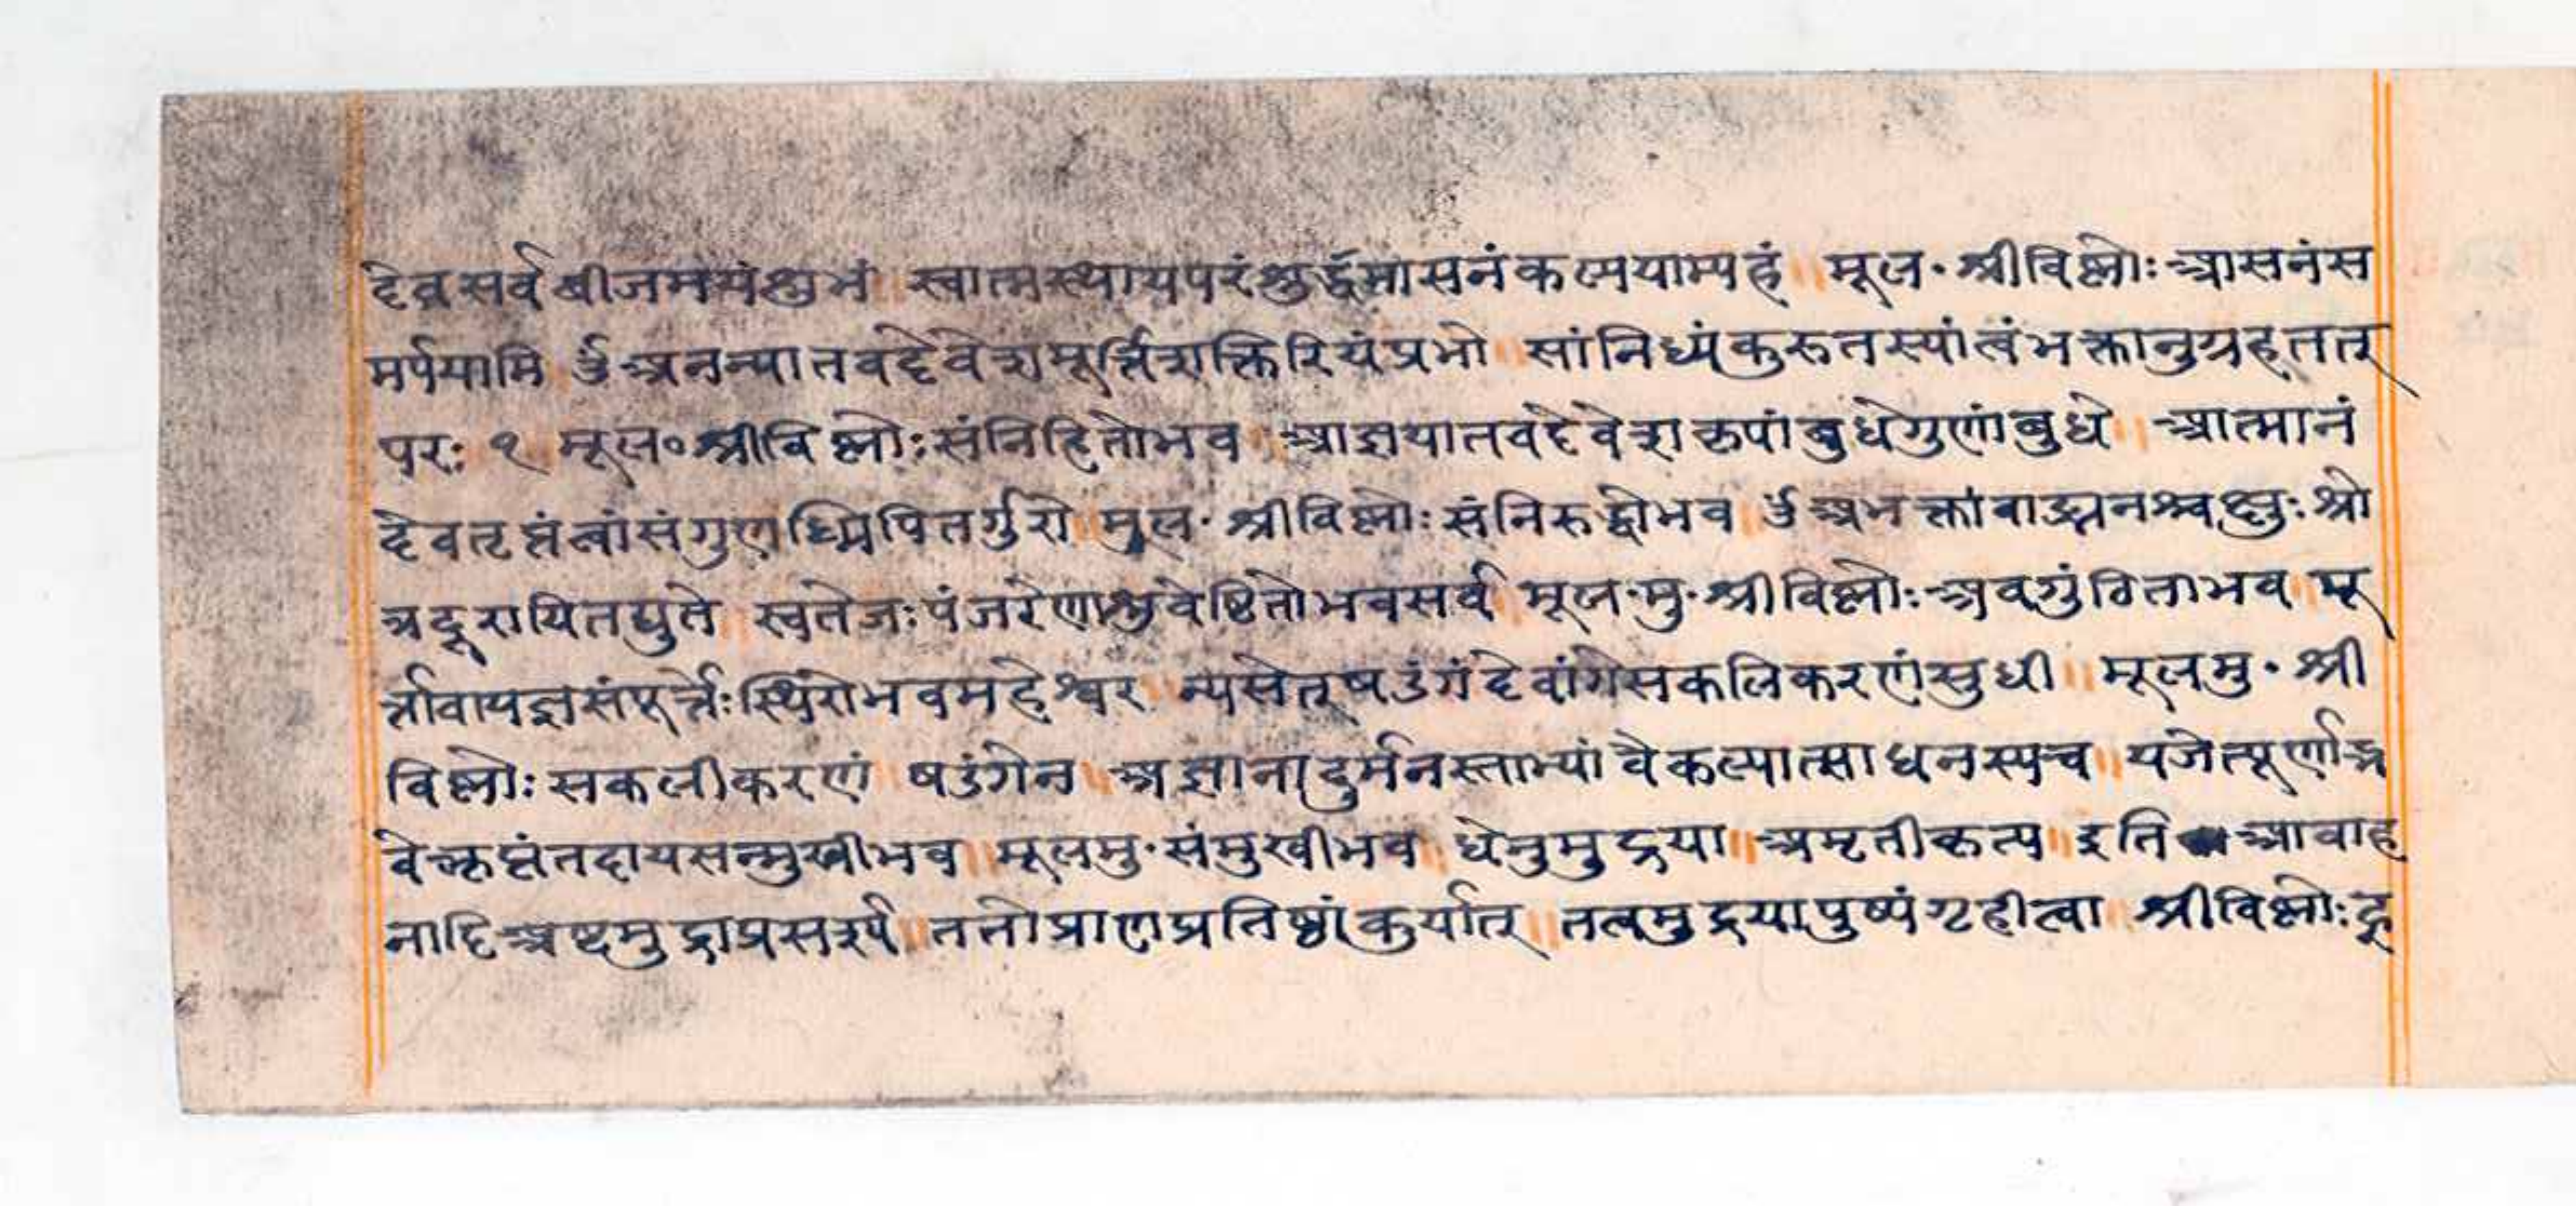 देव सर्व बीजमयंशुभं ॥ स्वात्मस्थायपरंशुर्द्धमासनंकल्पयाम्यहं ॥ मूल॰ श्रीविष्णोः आसनंस
मर्पयामि ॐ अनन्यातवदेवेशमूर्त्तिशक्तिरियंप्रभो ॥ सांनिध्यंकुरुतस्यांत्वंभक्तानुग्रहतत्
परः १ मूल॰ श्रीविष्णोः संनिहितोभव ॥ आज्ञयातवदेवेशकृपांबुधेगुणांबुधे ॥ आत्मानं
देवतृप्तंत्वांसंगुण पितर्गुरो ॥ मूल॰ श्रीविष्णोः संनिरुद्धोभव ॥ ॐ अभक्तांवाङ्मनश्चक्षुः श्रो
त्रदूरायितद्युते ॥ स्वतेजः पंजरेणाशुवेष्टितोभवसर्व ॥ मूल॰ मु॰ श्रीविष्णोः अवगुंठिताभव ॥ मू
र्त्तावायज्ञसंपूर्त्तेः स्थिरोभवमहेश्वर ॥ न्यसेत्षडंगंदेवांगेसकलिकरणंसुधी ॥ मूलमु॰ श्री
विष्णोः सकलीकरणं ॥ षडंगेन ॥ अज्ञानादुर्मनस्ताभ्यांवैकल्यात्साधनस्यच ॥ यजेत्पूर्णाङ्ग
वेत्कृप्तंतदायसन्मुखीभव ॥ मूलमु॰ संमुखीभव ॥ धेनुमुद्रया ॥ अमृतीकृत्य ॥ इति आवाह
नादिअष्टमुद्राप्रसर्प्य ॥ ततोप्राणप्रतिष्ठांकुर्यात् ॥ तत्वमुद्रयापुष्पंगृहीत्वा ॥ श्रीविष्णोः हृ